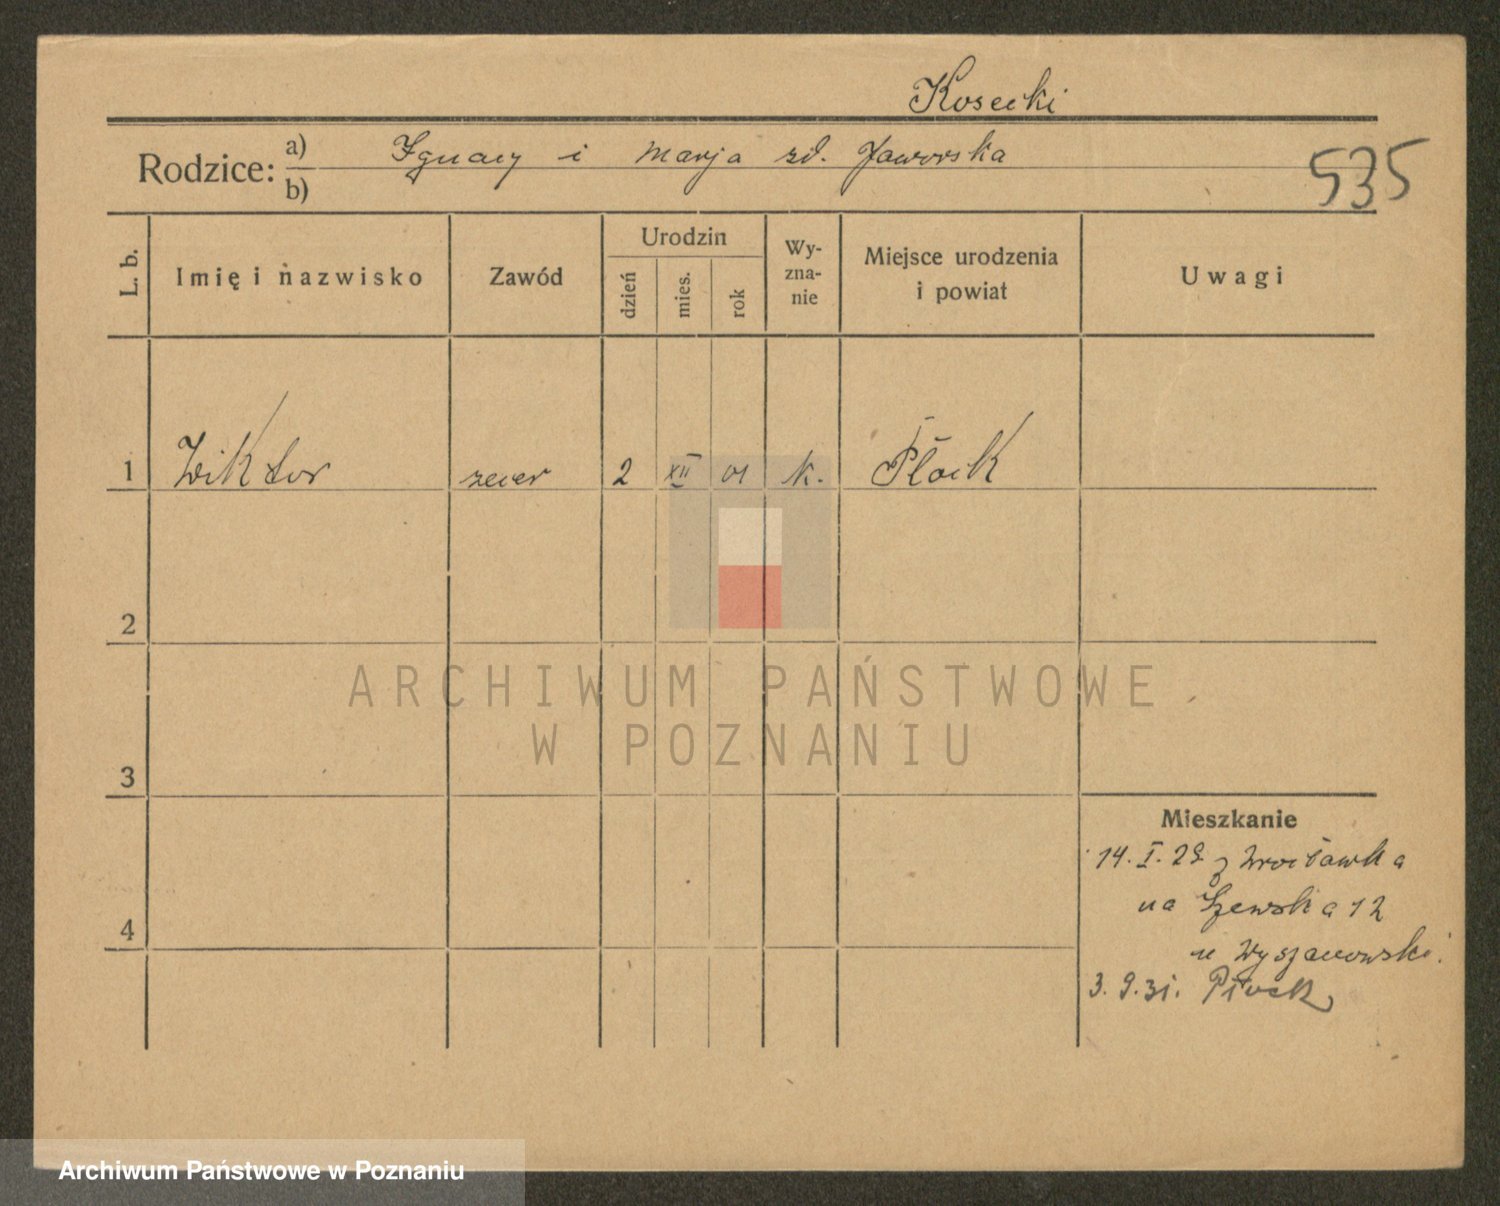 Kosecki
Rodzice: a) Ignacy i Marja zd. Jaworska
b)
535
L. b.
Imię i nazwisko
Zawód
Urodzin
dzień
mies.
rok
Wy-
zna-
nie
Miejsce urodzenia
i powiat
Uwagi
1 Wiktor zecer 2 XII 01 k. Płock
2
3
4
Mieszkanie
14. I. 29 z Włocławka
na Szewska 12
u Wyszanowski.
3. 9. 31. Płock
ARCHIWUM PAŃSTWOWE
W POZNANIU
Archiwum Państwowe w Poznaniu